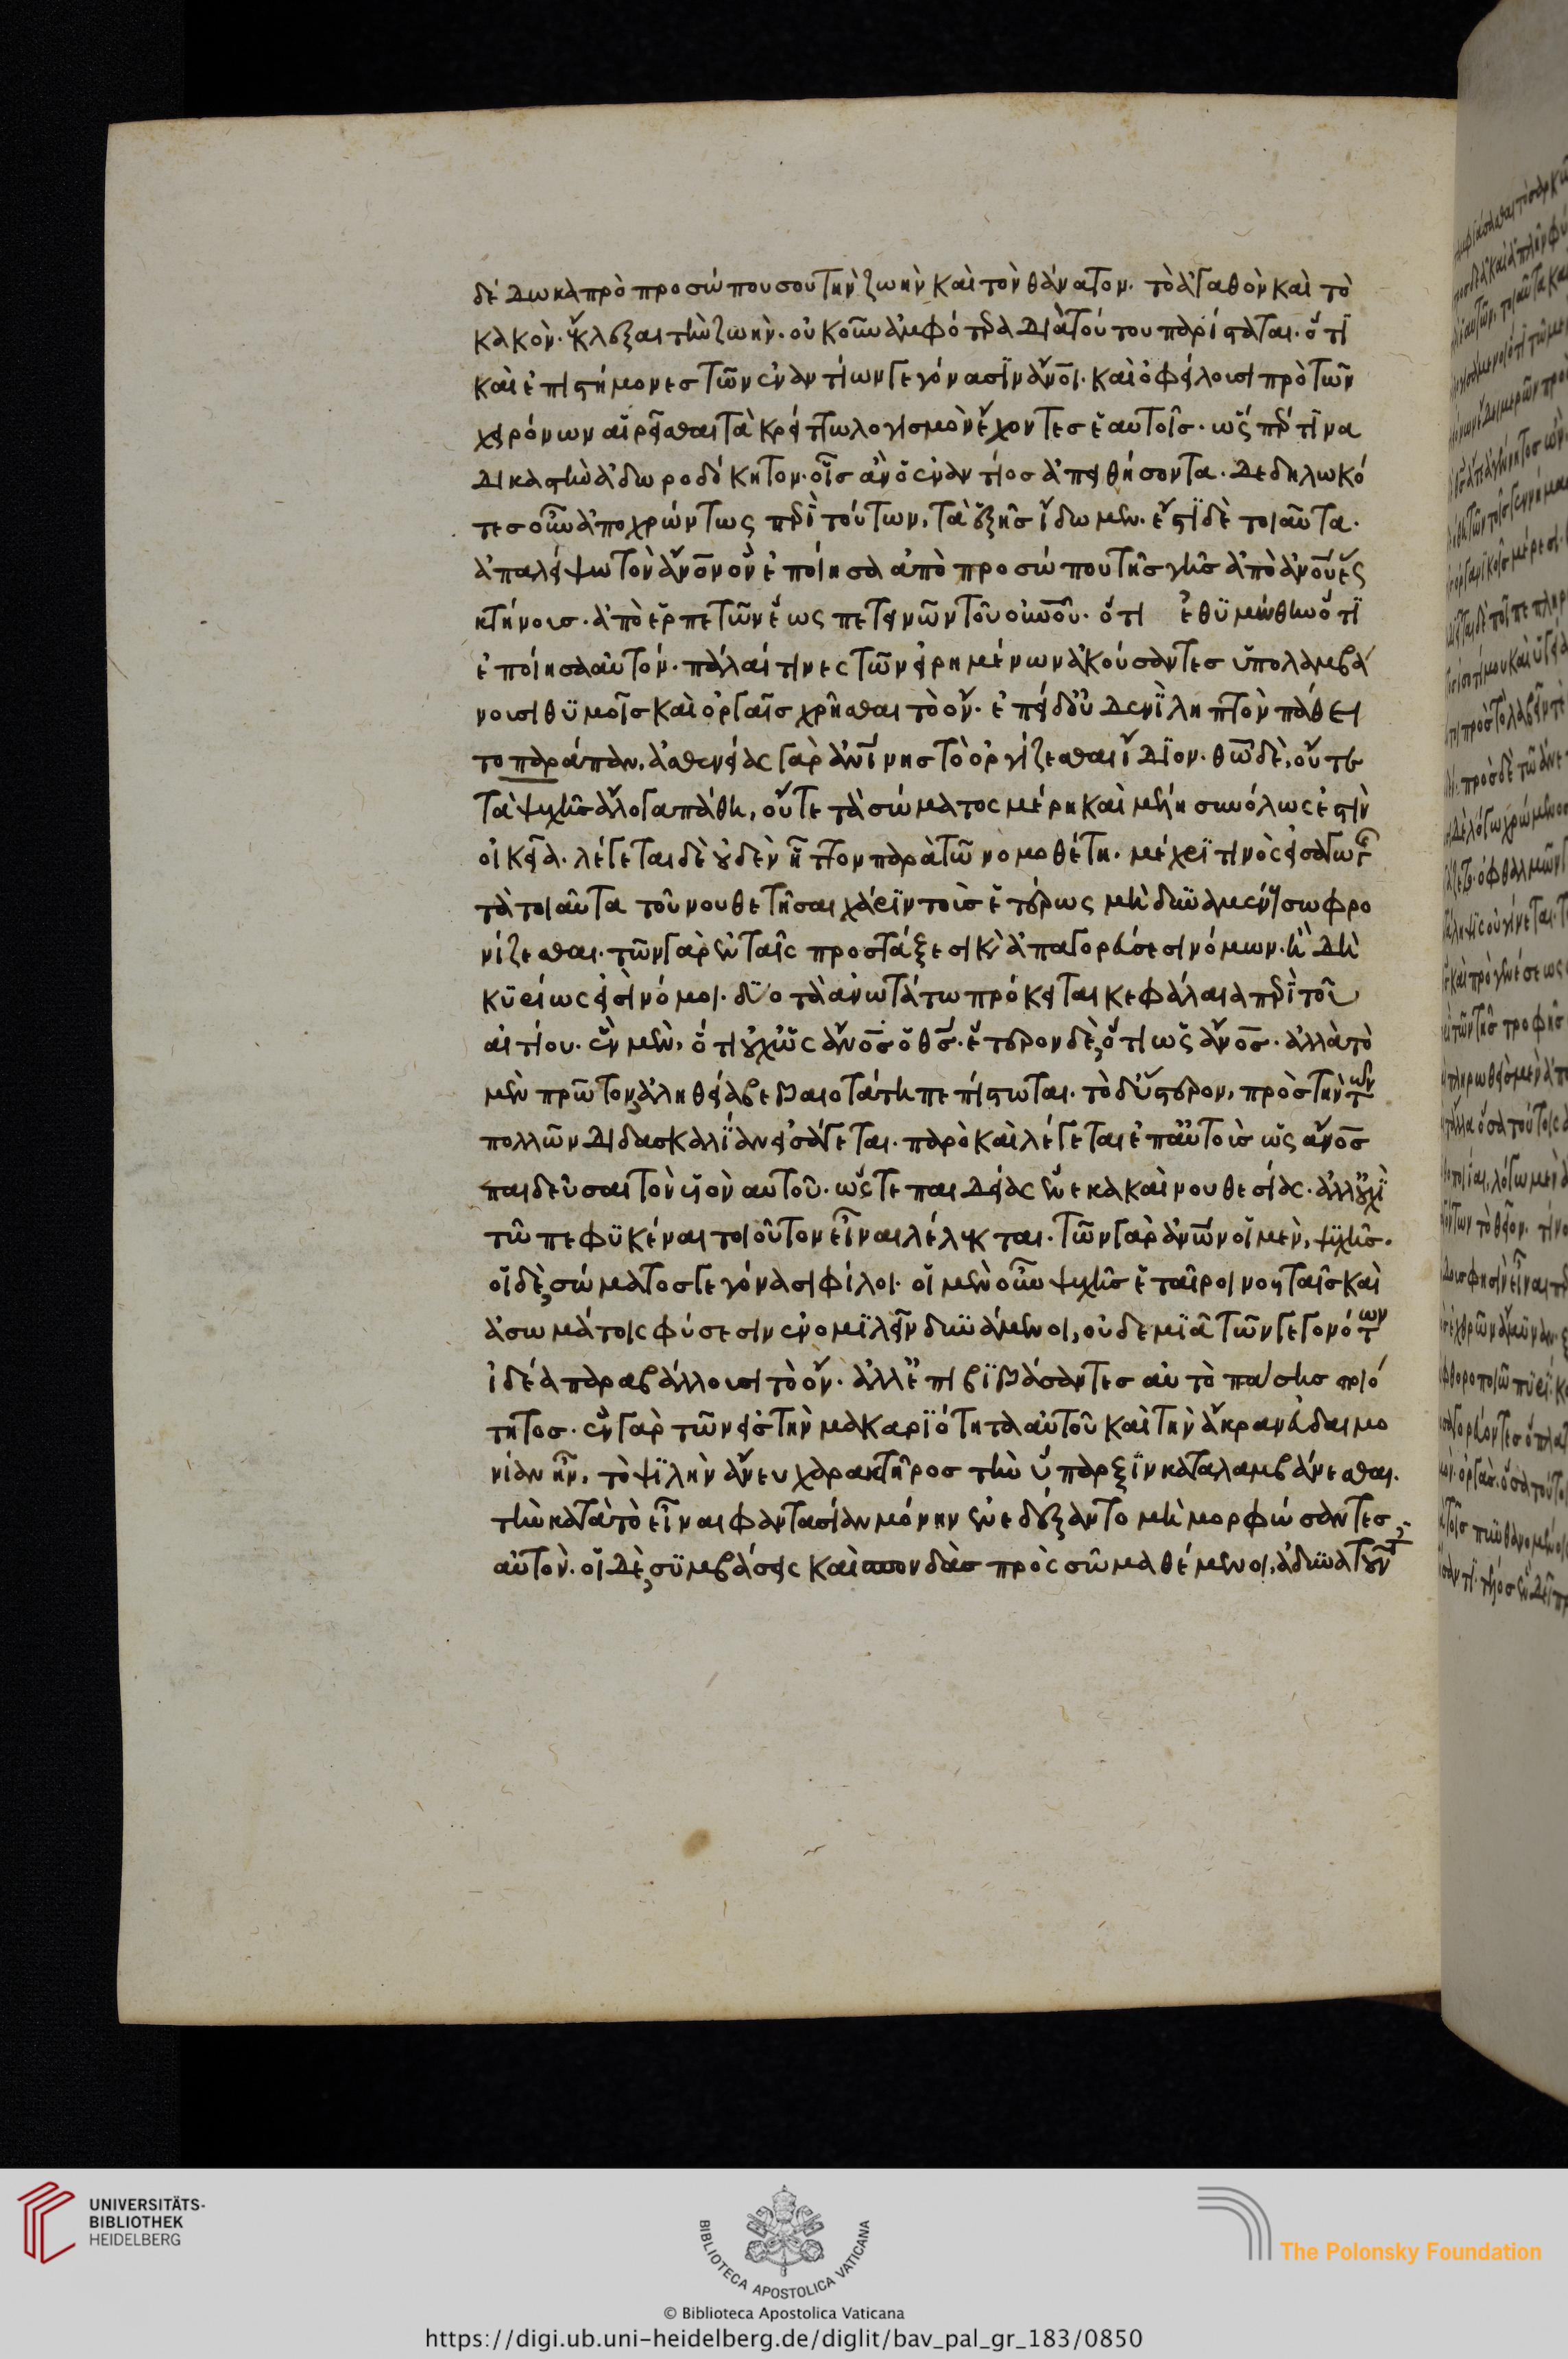 δέδωκα πρὸ προσώπου σου τὴν ζωὴν καὶ τὸν θάνατον. τὸ ἀγαθὸν καὶ τὸ
κακὸν. ἔκλεξαι τὴν ζωὴν. οὐκοῦν ἀμφότερα διὰ τούτου παρίσταται. ὅτι
καὶ ἐπιστήμονες τῶν ἐναντίων γεγόνασιν ἄνοι. καὶ ὀφείλουσι πρὸ τῶν
χειρόνων αἱρεῖσθαι τὰ κρείττω λογισμὸν ἔχοντες ἑαυτοῖς. ὥσπέρ τινα
δικαστὴν ἀδωροδόκητον. οἷς ἂν ὁ ἐναντίος ἀπειθήσοντα. δεδηλωκό
τες οὖν ἀποχρώντως περὶ τούτων, τὰ ἑξῆς ἴδωμεν. ἔστι δὲ τοιαῦτα.
ἀπαλείψω τὸν ἄνον ὃν ἐποίησα ἀπὸ προσώπου τῆς γῆς ἀπὸ ἀνου ἕως
κτήνους. ἀπὸ ἑρπετῶν ἕως πετεινῶν τοῦ οὐνοῦ. ὅτι ἐθυμώθην ὅτι
ἐποίησα αὐτόν. πάλαι τινες τῶν εἰρημένων ἀκούσαντες ὑπολαμβά
νουσι θυμοῖς καὶ ὀργαῖς χρῆσθαι τὸ ὄν. ἔπει δ' οὐδενὶ ληπτὸν πάθει
το παράπαν. ἀσθενείας γὰρ ἀνίνης τὸ ὀργίζεσθαι ἴδιον. θῶ δὲ, οὔτε
τὰ ψυχῆς ἄλογα πάθη, οὔτε τὰ σώματος μέρη καὶ μέλη συνόλως ἐστὶν
οἰκεῖα. λέγεται δὲ οὐδὲν ἧττον παρὰ τῶ νομοθέτη. μέχρι τινὸς εἰσαγωγῆς
τὰ τοιαῦτα τοῦ νουθετῆσαι χάριν τοὺς ἑτέρως μὴ δυναμένους σωφρο
νίζεσθαι. τῶν γὰρ ἐν ταῖς προστάξεσι καὶ ἀπαγορεύσεσι νόμων. ἣ δὴ
κυρίως εἰσὶ νόμοι. δύο τὰ ἀνωτάτω πρόκειται κεφάλαια περὶ τοῦ
αἰτίου. ἓν μὲν, ὅτι οὐχ ὡς ἄνος ὁ θς. ἕτερον δὲ, ὅτι ὡς ἄνος. ἀλλὰ τὸ
μὲν πρῶτον, ἀληθεία βεβαιοτάτη πεπίστωται. τὸ δ' ὕστερον, πρὸς τὴν τῶν
πολλῶν διδασκαλίαν εἰσάγεται. παρὸ καὶ λέγεται ἐπ' αὐτοῖς ὡς ἄνος
παιδεῦσαι τὸν υἱὸν αὐτοῦ. ὥστε παιδείας ἕνεκα καὶ νουθεσίας. ἀλλ' οὐχὶ
τῶ πεφυκέναι τοιοῦτον εἶναι λέλεκται. τῶν γὰρ ἀνων οἱ μὲν, ψυχῆς.
οἱ δὲ, σώματος γεγόνασι φίλοι. οἱ μὲν οὖν ψυχῆς ἑταῖροι νοηταῖς καὶ
ἀσωμάτοις φύσεσιν ἐνομιλεῖν δυνάμενοι, οὐδεμιᾶ τῶν γεγονότων
ἰδέα παραβάλλουσι τὸ ὄν. ἀλλ' ἐπιβιβάσαντες αὐτὸ πάσης ποιό
τητος. ἓν γὰρ τῶν εἰς τὴν μακαριότητα αὐτοῦ καὶ τὴν ἄκραν εὐδαιμο
νίαν ἦν, τὸ ψιλὴν ἄνευ χαρακτῆρος τὴν ὕπαρξιν καταλαμβάνεσθαι.
τὴν κατὰ τὸ εἶναι φαντασίαν μόνην ἐνεδέξαντο μὴ μορφώσαντες
αὐτὸν. οἱ δὲ, συμβάσεις καὶ σπονδὰς πρὸς σῶμα θέμενοι, ἀδυνατοῦντ
UNIVERSITÄTS-
BIBLIOTHEK
HEIDELBERG
BIBLIOTECA APOSTOLICA VATICANA
The Polonsky Foundation
© Biblioteca Apostolica Vaticana
https://digi.ub.uni-heidelberg.de/diglit/bav_pal_gr_183/0850